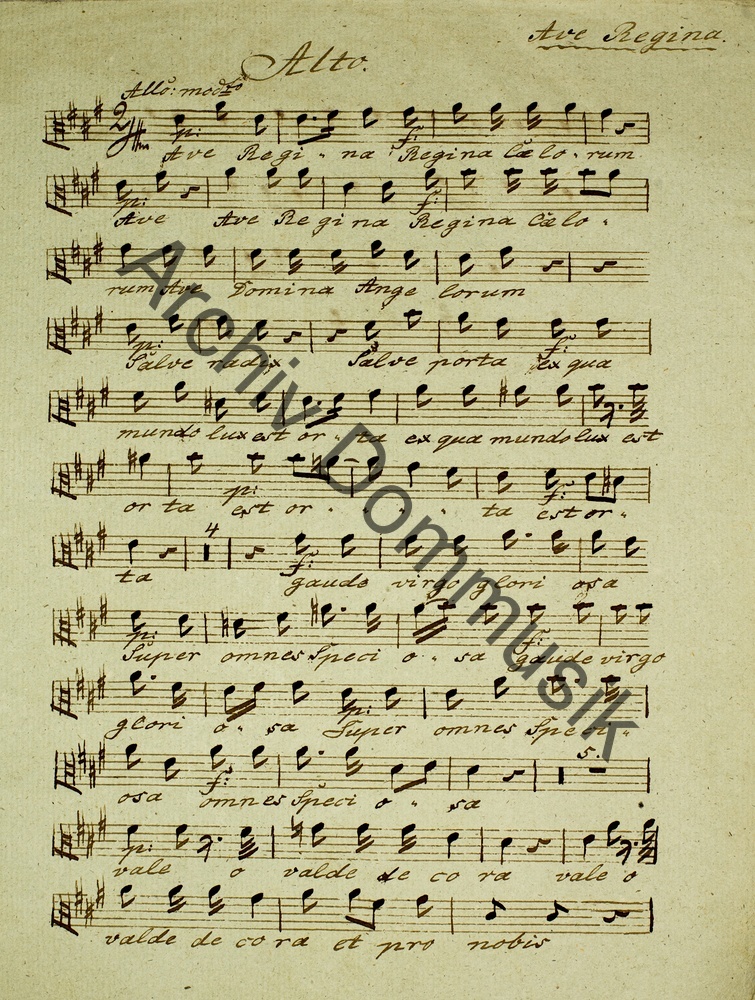 Ave Regina.
Alto.
Allo: modto
p: f:
Ave Regi - na Regina Cælo - rum
p: f:
Ave Ave Regina Regina Cælo -
rum Ave Domina Ange lorum
p: f:
Salve radix Salve porta ex qua
mundo lux est or - ta ex qua mundo lux est
p: f:
or ta est or - - - - ta est or -
4
f:
ta gaude virgo glori osa
p: f:
Super omnes Speci o - sa gaude virgo
p:
glori o - sa Super omnes Speci -
5.
f:
osa omnes Speci o - sa
p:
vale o valde de co ra vale o
valde de co ra et pro nobis
Archiv Dommusik